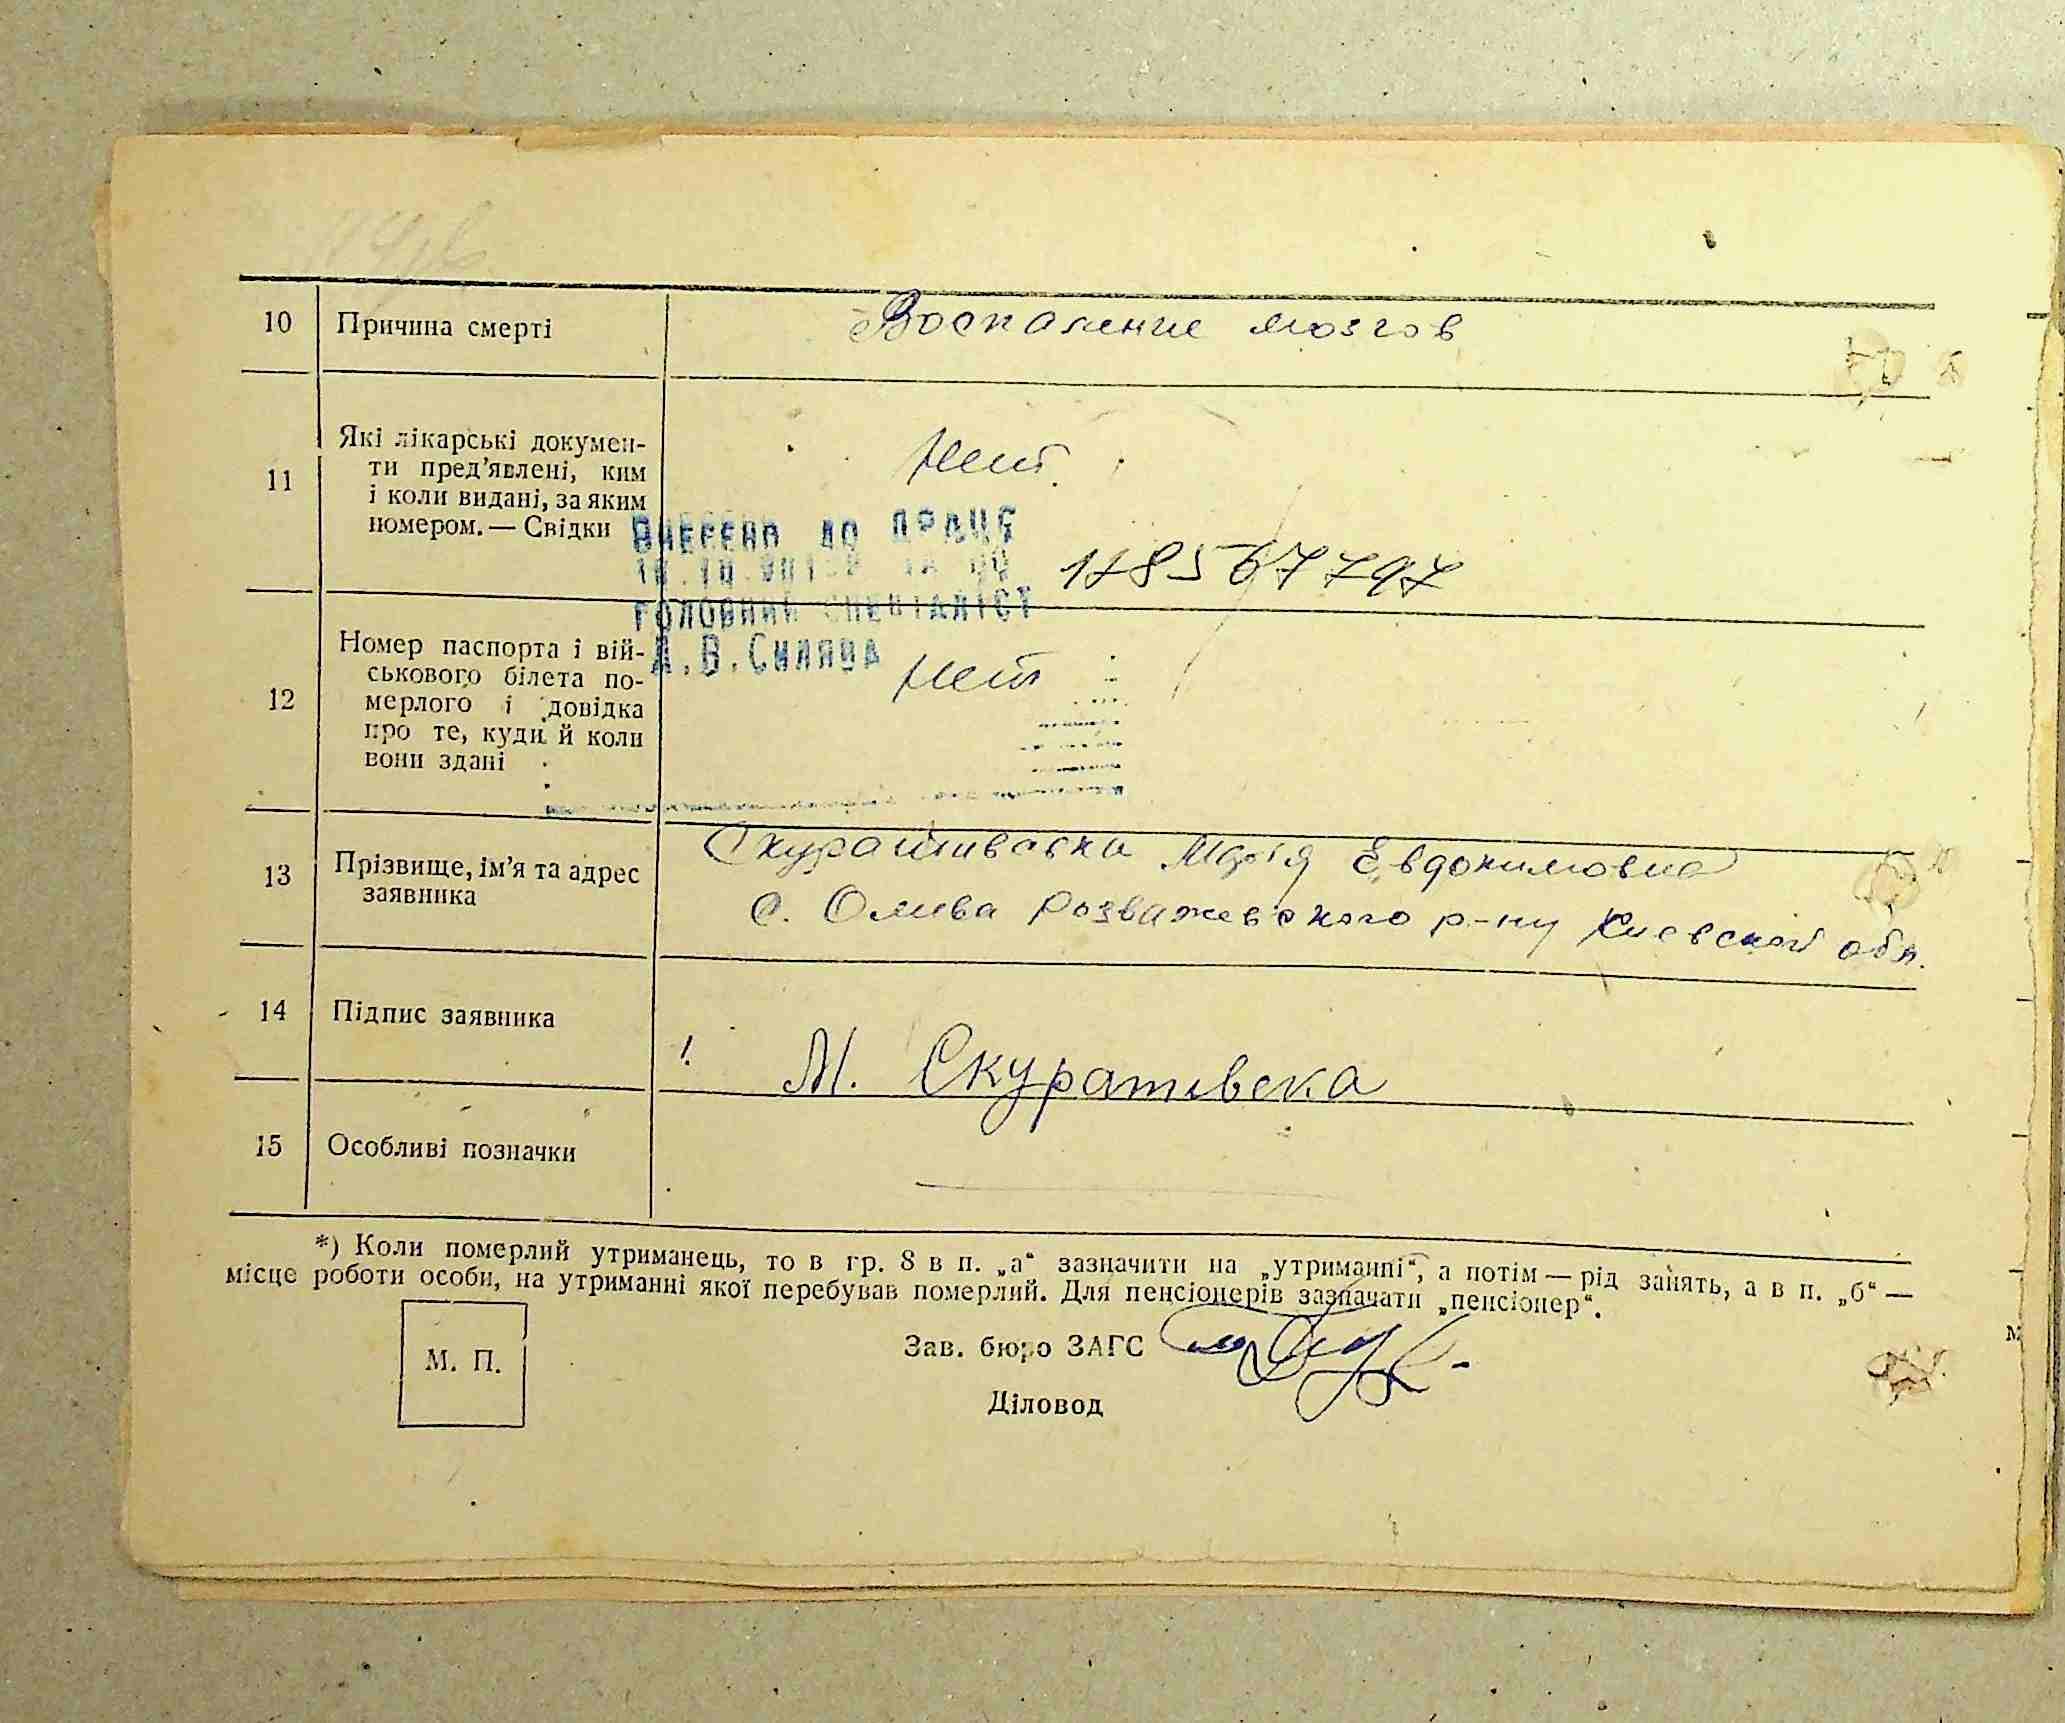 10 Причина смерті Воспаление мозгов
11 Які лікарські докумен-
ти пред'явлені, ким
і коли видані, за яким
номером. — Свідки
Нет.
ВНЕСЕНО ДО ДРАЦС
ГОЛОВНИЙ СПЕЦІАЛІСТ
А.В.Силява
12 Номер паспорта і вій-
ськового білета по-
мерлого і довідка
про те, куди й коли
вони здані
Нет
13 Прізвище, ім'я та адрес
заявника
Мария Евдокимовна
с. Олива Розважевского р-ну Киевской обл.
14 Підпис заявника
М. Скуратівська
15 Особливі позначки
*) Коли померлий утриманець, то в гр. 8 в п. „а“ зазначити на „утриманні“, а потім — рід занять, а в п. „б“ —
місце роботи особи, на утриманні якої перебував померлий. Для пенсіонерів зазначати „пенсіонер“.
М. П.
Зав. бюро ЗАГС
Діловод